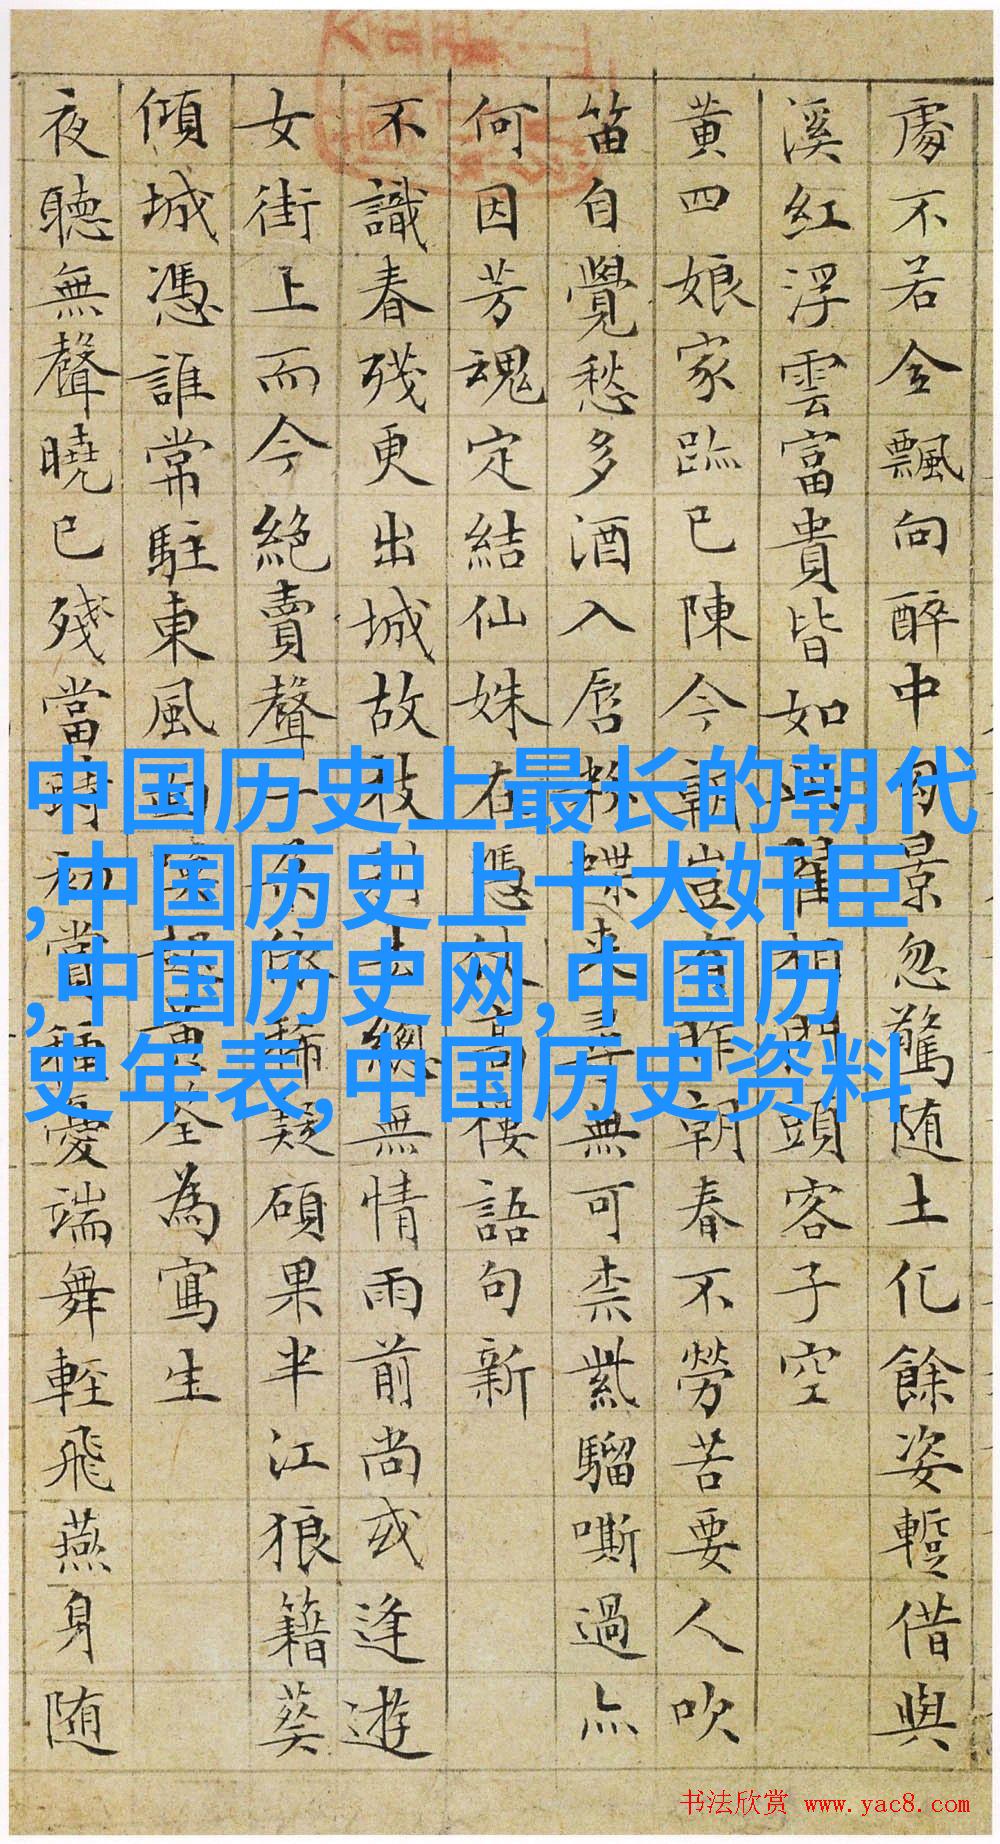 處不若金飄向醉中⿰景忽驚随土化餘姿蹔借與
溪紅浮雲富貴皆如頭客子空
黄四娘家跡已陳今朝豈有昨朝春不勞苦要人吹
笛自覺愁多酒入唇蝶来尋無可柰紫騮嘶過亦
何因芳魂定結仙姝在憑高樓語句新
不識春残更出城故枝總無情雨前尚或逢遊
女街上而今絶賣聲稀疑碩果半江狼籍葵
傾城憑誰常駐東風全為寫生
夜聽無聲曉已殘當時賞愛端舞輕飛燕身随
中国历史上最长的朝代
,中国历史上十大奸臣
,中国历史网,中国历
史年表,中国历史资料
书法欣赏 www.yac8.com